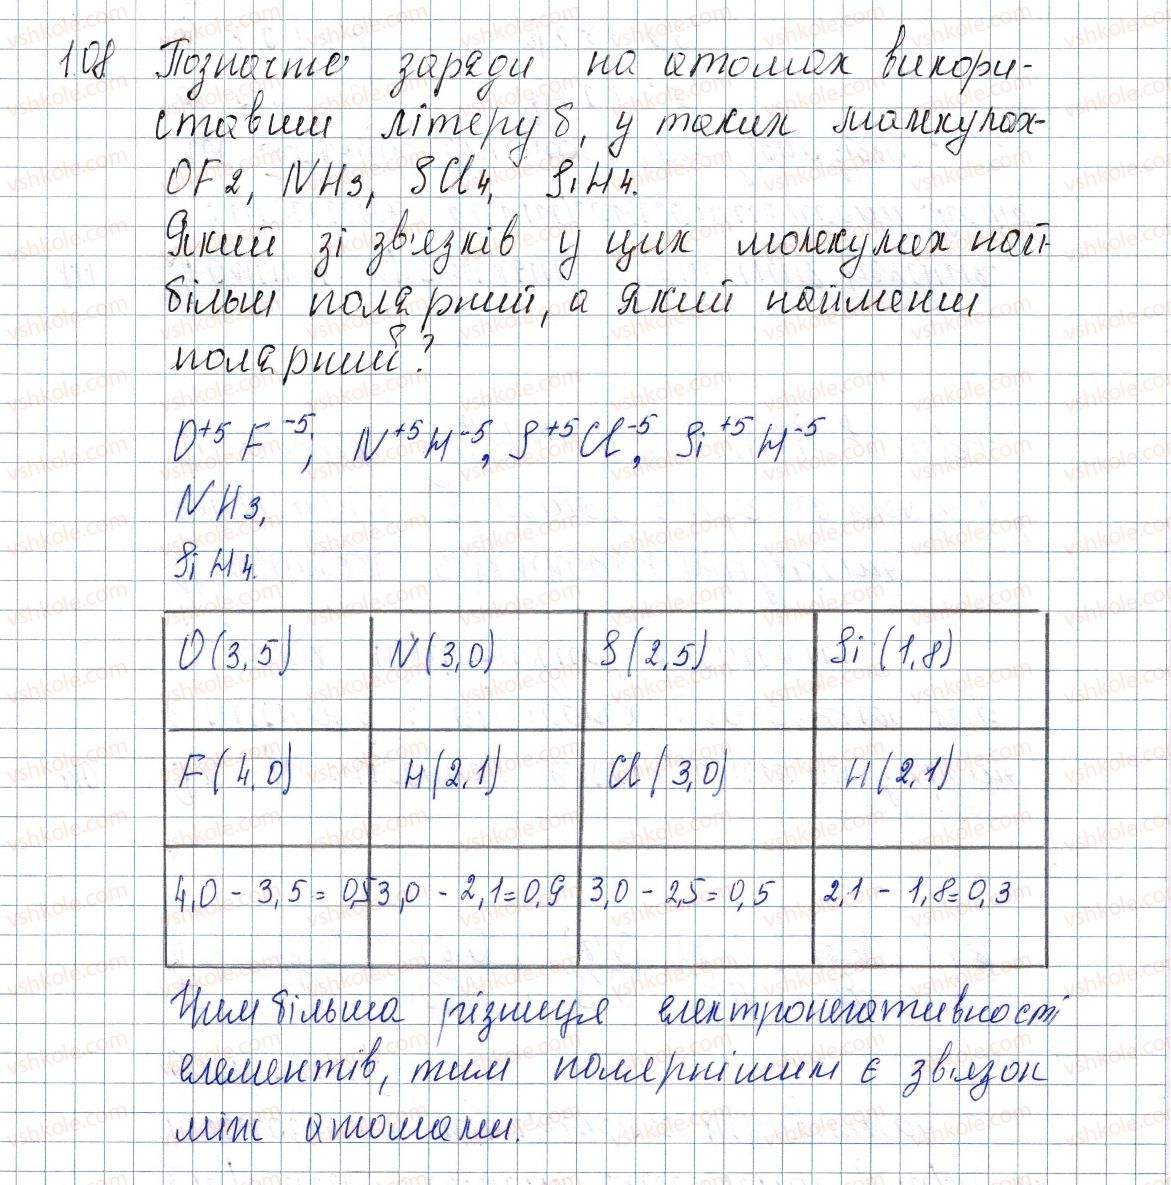 108 Позначте заряди на атомах викори-
ставши літеру б, у таких молекулах-
OF2, NH3, SCl4, SiH4.
Який зі зв'язків у цих молекулах най-
більш полярний, а який найменш
полярний?
O+5 F-5; N+5 H-5, S+5 Cl-5, Si+5 H-5
NH3,
SiH4.
O(3,5) N(3,0) S(2,5) Si(1,8)
F(4,0) H(2,1) Cl(3,0) H(2,1)
4,0 - 3,5 = 0,5 3,0 - 2,1 = 0,9 3,0 - 2,5 = 0,5 2,1 - 1,8 = 0,3
Чим більша різниця електронегативності
елементів, тим полярнішим є зв'язок
між атомами.
vshkole.com